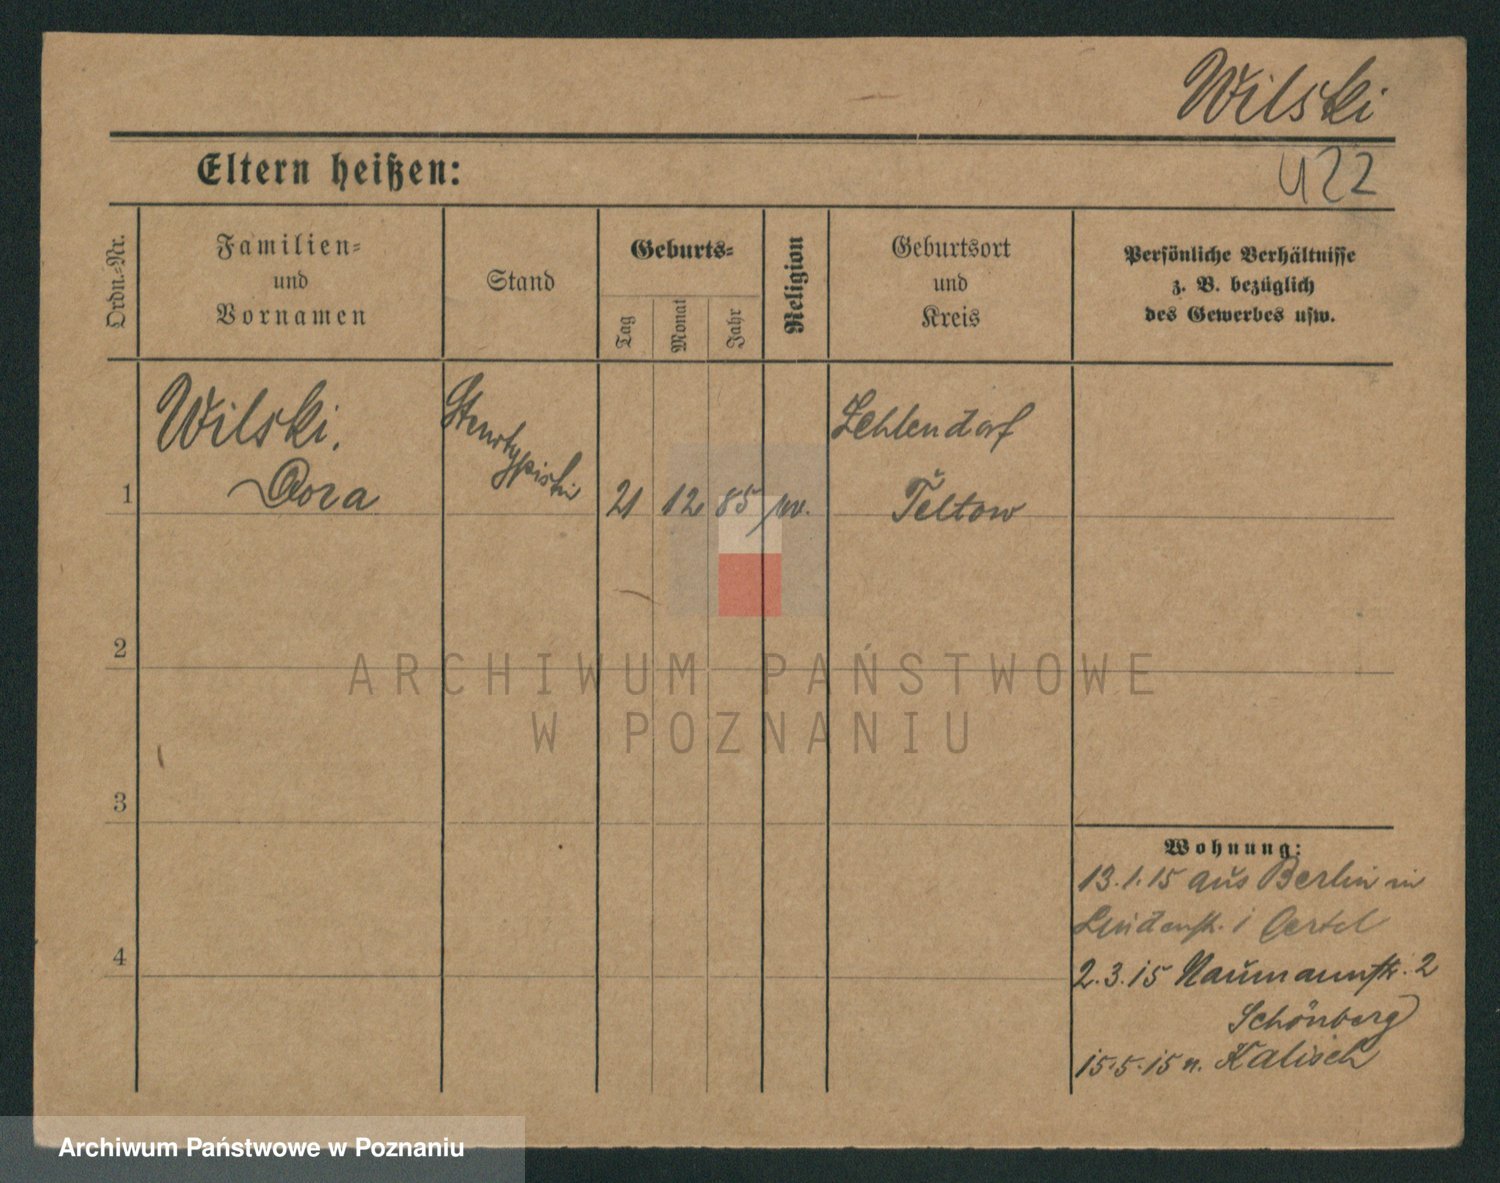 Wilski
422
Eltern heißen:
Ordn.-Nr.
Familien-
und
Vornamen
Stand
Geburts-
Tag
Monat
Jahr
Religion
Geburtsort
und
Kreis
Persönliche Verhältnisse
z. B. bezüglich
des Gewerbes usw.
1
Wilski,
Dora
Stenotypistin
21 12 85 ev.
Zehlendorf
Teltow
2
3
4
Wohnung:
13.1.15 aus Berlin in
Lindenstr. 1 Oertel
2.3.15 Naumannstr. 2
Schönberg
15.5.15 n. Kalisch
ARCHIWUM PAŃSTWOWE
W POZNANIU
Archiwum Państwowe w Poznaniu